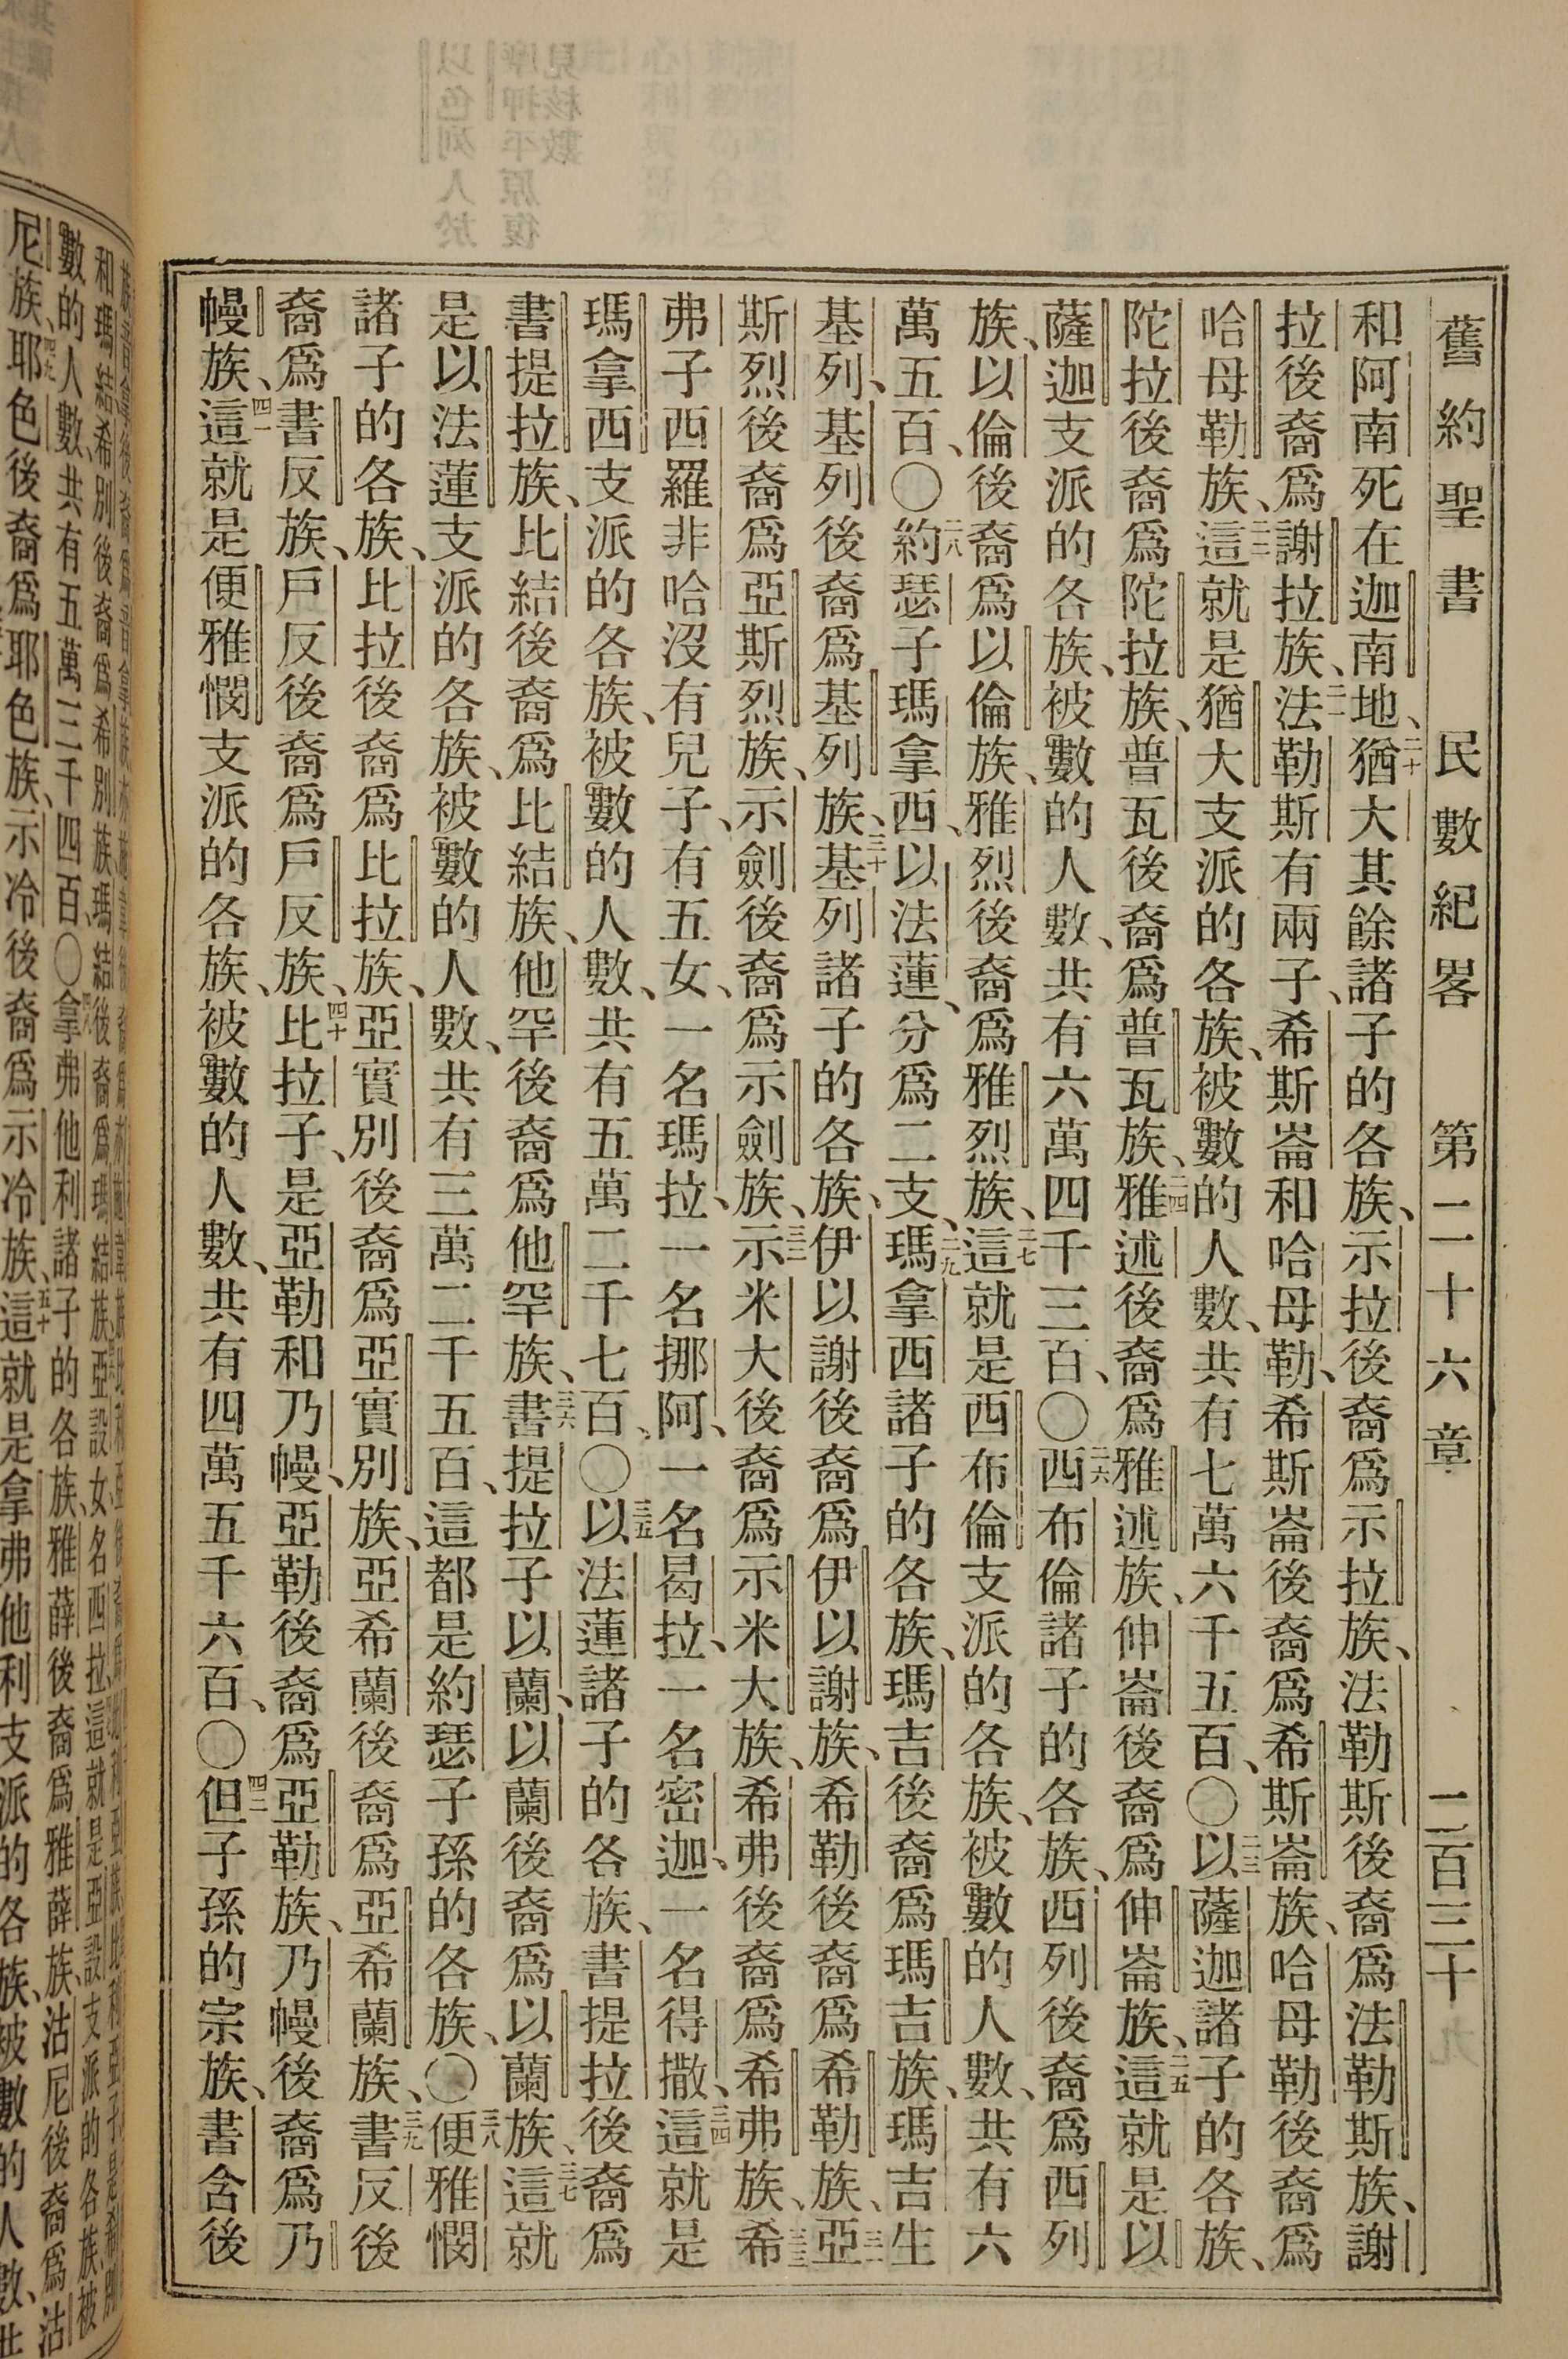 舊約聖書 民數紀畧 第二十六章 二百三十九
和阿南死在迦南地、二十猶大其餘諸子的各族、示拉後裔爲示拉族、法勒斯後裔爲法勒斯族、謝
拉後裔爲謝拉族、二一法勒斯有兩子、希斯崙和哈母勒、希斯崙後裔爲希斯崙族、哈母勒後裔爲
哈母勒族、二二這就是猶大支派的各族、被數的人數、共有七萬六千五百、〇二三以薩迦諸子的各族、
陀拉後裔爲陀拉族、普瓦後裔爲普瓦族、二四雅述後裔爲雅述族、伸崙後裔爲伸崙族、二五這就是以
薩迦支派的各族、被數的人數、共有六萬四千三百、〇二六西布倫諸子的各族、西列後裔爲西列
族、以倫後裔爲以倫族、雅烈後裔爲雅烈族、二七這就是西布倫支派的各族、被數的人數、共有六
萬五百、〇二八約瑟子瑪拿西、以法蓮、分爲二支、二九瑪拿西諸子的各族、瑪吉後裔爲瑪吉族、瑪吉生
基列、基列後裔爲基列族、三十基列諸子的各族、伊以謝後裔爲伊以謝族、希勒後裔爲希勒族、三一亞
斯烈後裔爲亞斯烈族、示劍後裔爲示劍族、三二示米大後裔爲示米大族、希弗後裔爲希弗族、三三希
弗子西羅非哈沒有兒子、有五女、一名瑪拉、一名挪阿、一名曷拉、一名密迦、一名得撒、三四這就是
瑪拿西支派的各族、被數的人數、共有五萬二千七百、〇三五以法蓮諸子的各族、書提拉後裔爲
書提拉族、比結後裔爲比結族、他罕後裔爲他罕族、三六書提拉子以蘭、以蘭後裔爲以蘭族、三七這就
是以法蓮支派的各族、被數的人數、共有三萬二千五百、這都是約瑟子孫的各族、〇三八便雅憫
諸子的各族、比拉後裔爲比拉族、亞實別後裔爲亞實別族、亞希蘭後裔爲亞希蘭族、三九書反後
裔爲書反族、戶反後裔爲戶反族、四十比拉子、是亞勒和乃幔、亞勒後裔爲亞勒族、乃幔後裔爲乃
幔族、四一這就是便雅憫支派的各族、被數的人數、共有四萬五千六百、〇四二但子孫的宗族、書含後
數的人數、共有五萬三千四百、〇四八拿弗他利諸子的各族、雅薛後裔爲雅薛族、沽尼後裔爲沽
尼族、四九耶色後裔爲耶色族、示冷後裔爲示冷族、五十這就是拿弗他利支派的各族、被數的人數、共